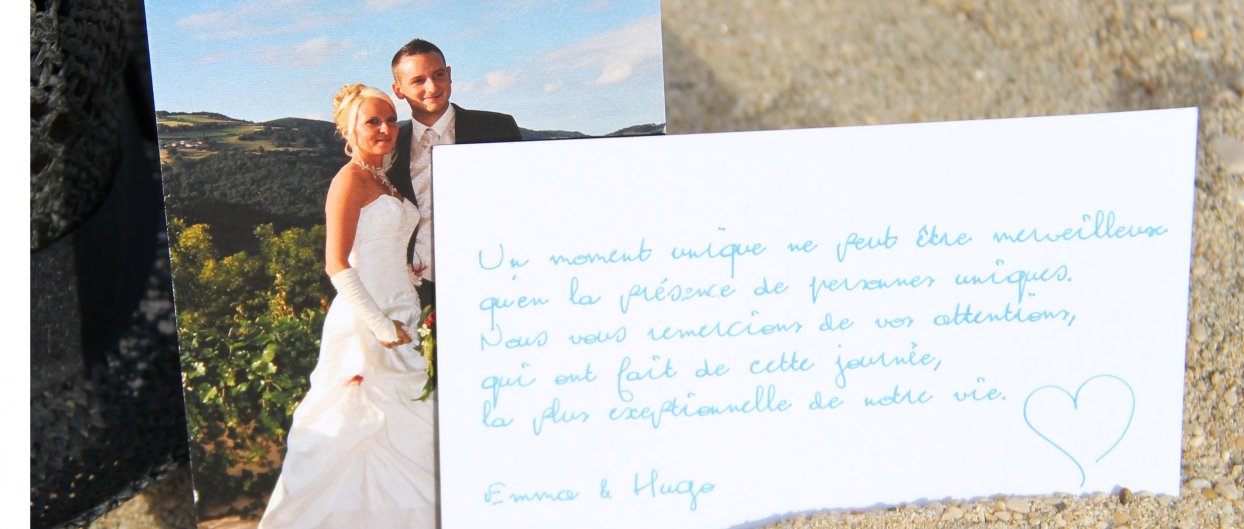 Un moment unique ne peut être merveilleux
qu'en la présence de personnes uniques.
Nous vous remercions de vos attentions,
qui ont fait de cette journée,
la plus exeptionnelle de notre vie.
Emma & Hugo